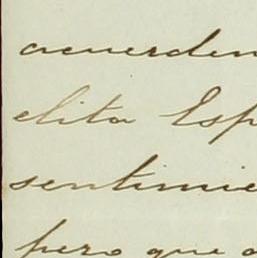 acuerden
elita Esp
sentimie
pero que a